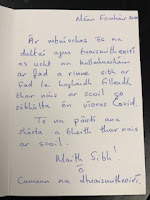 Meán Fomhair
Ár mbuíochas ós na
daltaí agus tuismitheoirí
as ucht na hullmhúcháin
ar fad a rinne sibh ar
fad le haghaidh filleadh
thar nais ar scoil go
sábháilte ón víoras Covid.
Tá na páistí ana
shásta a bheith thar nais
ar scoil.
Maith Sibh!
ó
Cumann na dtuismitheoirí.